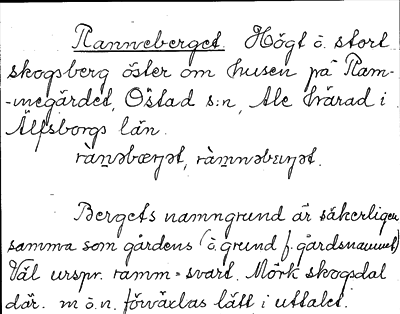 Ranneberget. Högt o. stort
skogsberg öster om husen på Ram-
-negärdet, Östad s:n, Ale härad i
Älfsborgs län.
rànəbærjət, ràmnəbærjət.
Bergets namngrund är säkerligen
samma som gårdens (o. grund f. gårdsnamnet)
Väl urspr. ramm = svart. Mörk skogsdal
där. m o. n. förväxlas lätt i uttalet.